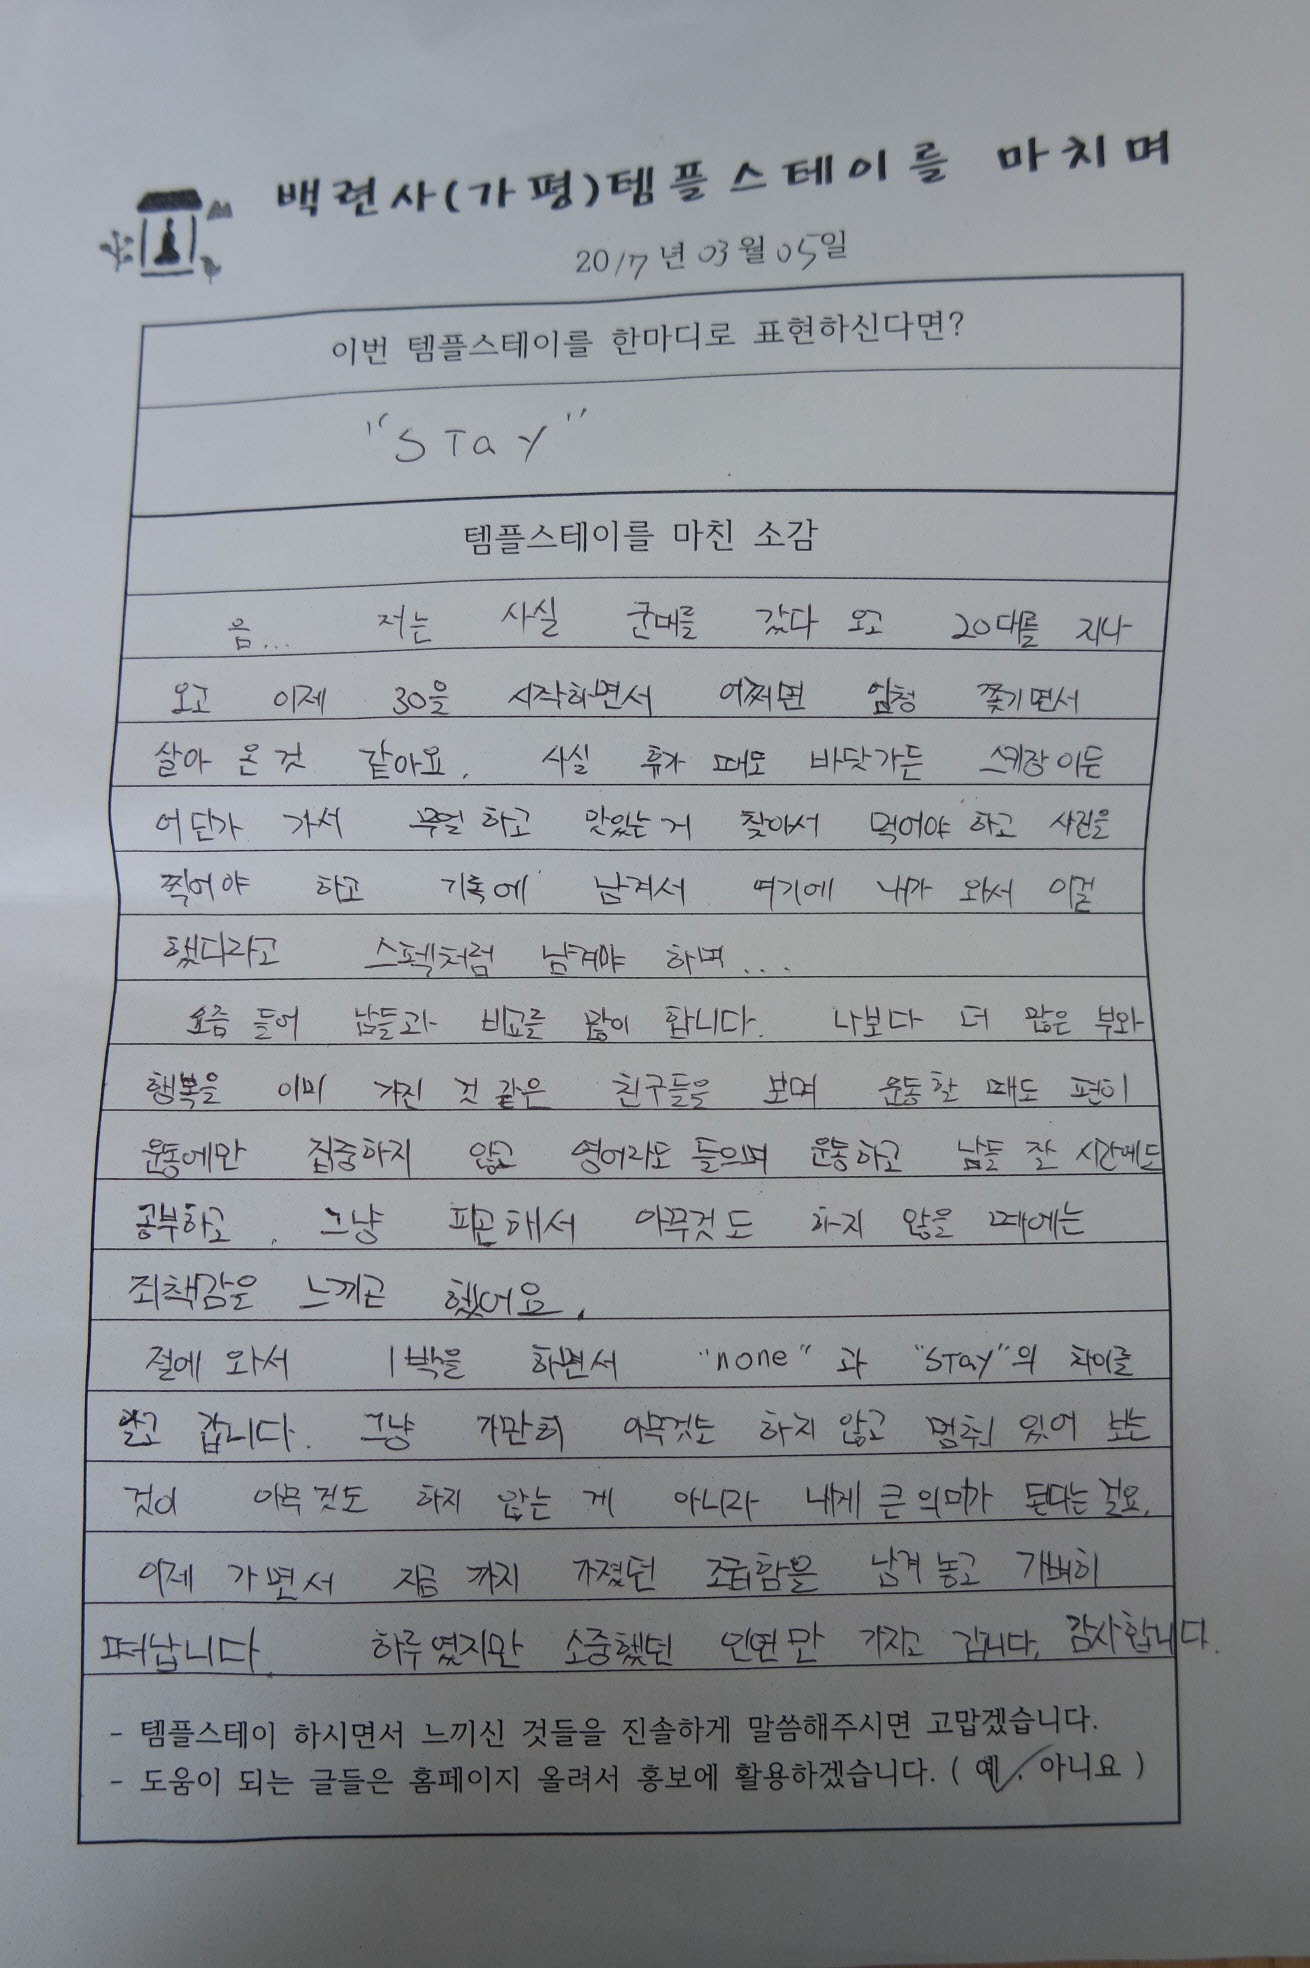 백련사(가평)템플스테이를 마치며
2017년 03월 05일
이번 템플스테이를 한마디로 표현하신다면?
"STay"
템플스테이를 마친 소감
음... 저는 사실 군대를 갔다 오고 20대를 지나
오고 이제 30을 시작하면서 어쩌면 엄청 쫓기면서
살아 온 것 같아요. 사실 휴가 때도 바닷가든 스키장이든
어딘가 가서 무얼 하고 맛있는 거 찾아서 먹어야 하고 사진을
찍어야 하고 기록에 남겨서 여기에 내가 와서 이걸
했다라고 스펙처럼 남겨야 하며....
요즘 들어 남들과 비교를 많이 합니다. 나보다 더 많은 부와
행복을 이미 가진 것 같은 친구들을 보며 운동할 때도 편히
운동에만 집중하지 않고 영어라도 들으며 운동하고 남들 잘 시간에도
공부하고. 그냥 피곤해서 아무것도 하지 않을 때에는
죄책감을 느끼곤 했어요.
절에 와서 1박을 하면서 "none"과 "STay"의 차이를
알고 갑니다. 그냥 가만히 아무것도 하지 않고 멈춰 있어 보는
것이 아무것도 하지 않는 게 아니라 내게 큰 의미가 된다는 걸요.
이제 가면서 지금까지 가졌던 조급함을 남겨 놓고 가벼히
떠납니다. 하루였지만 소중했던 인연만 가지고 갑니다. 감사합니다.
- 템플스테이 하시면서 느끼신 것들을 진솔하게 말씀해주시면 고맙겠습니다.
- 도움이 되는 글들은 홈페이지 올려서 홍보에 활용하겠습니다. ( 예 , 아니요 )